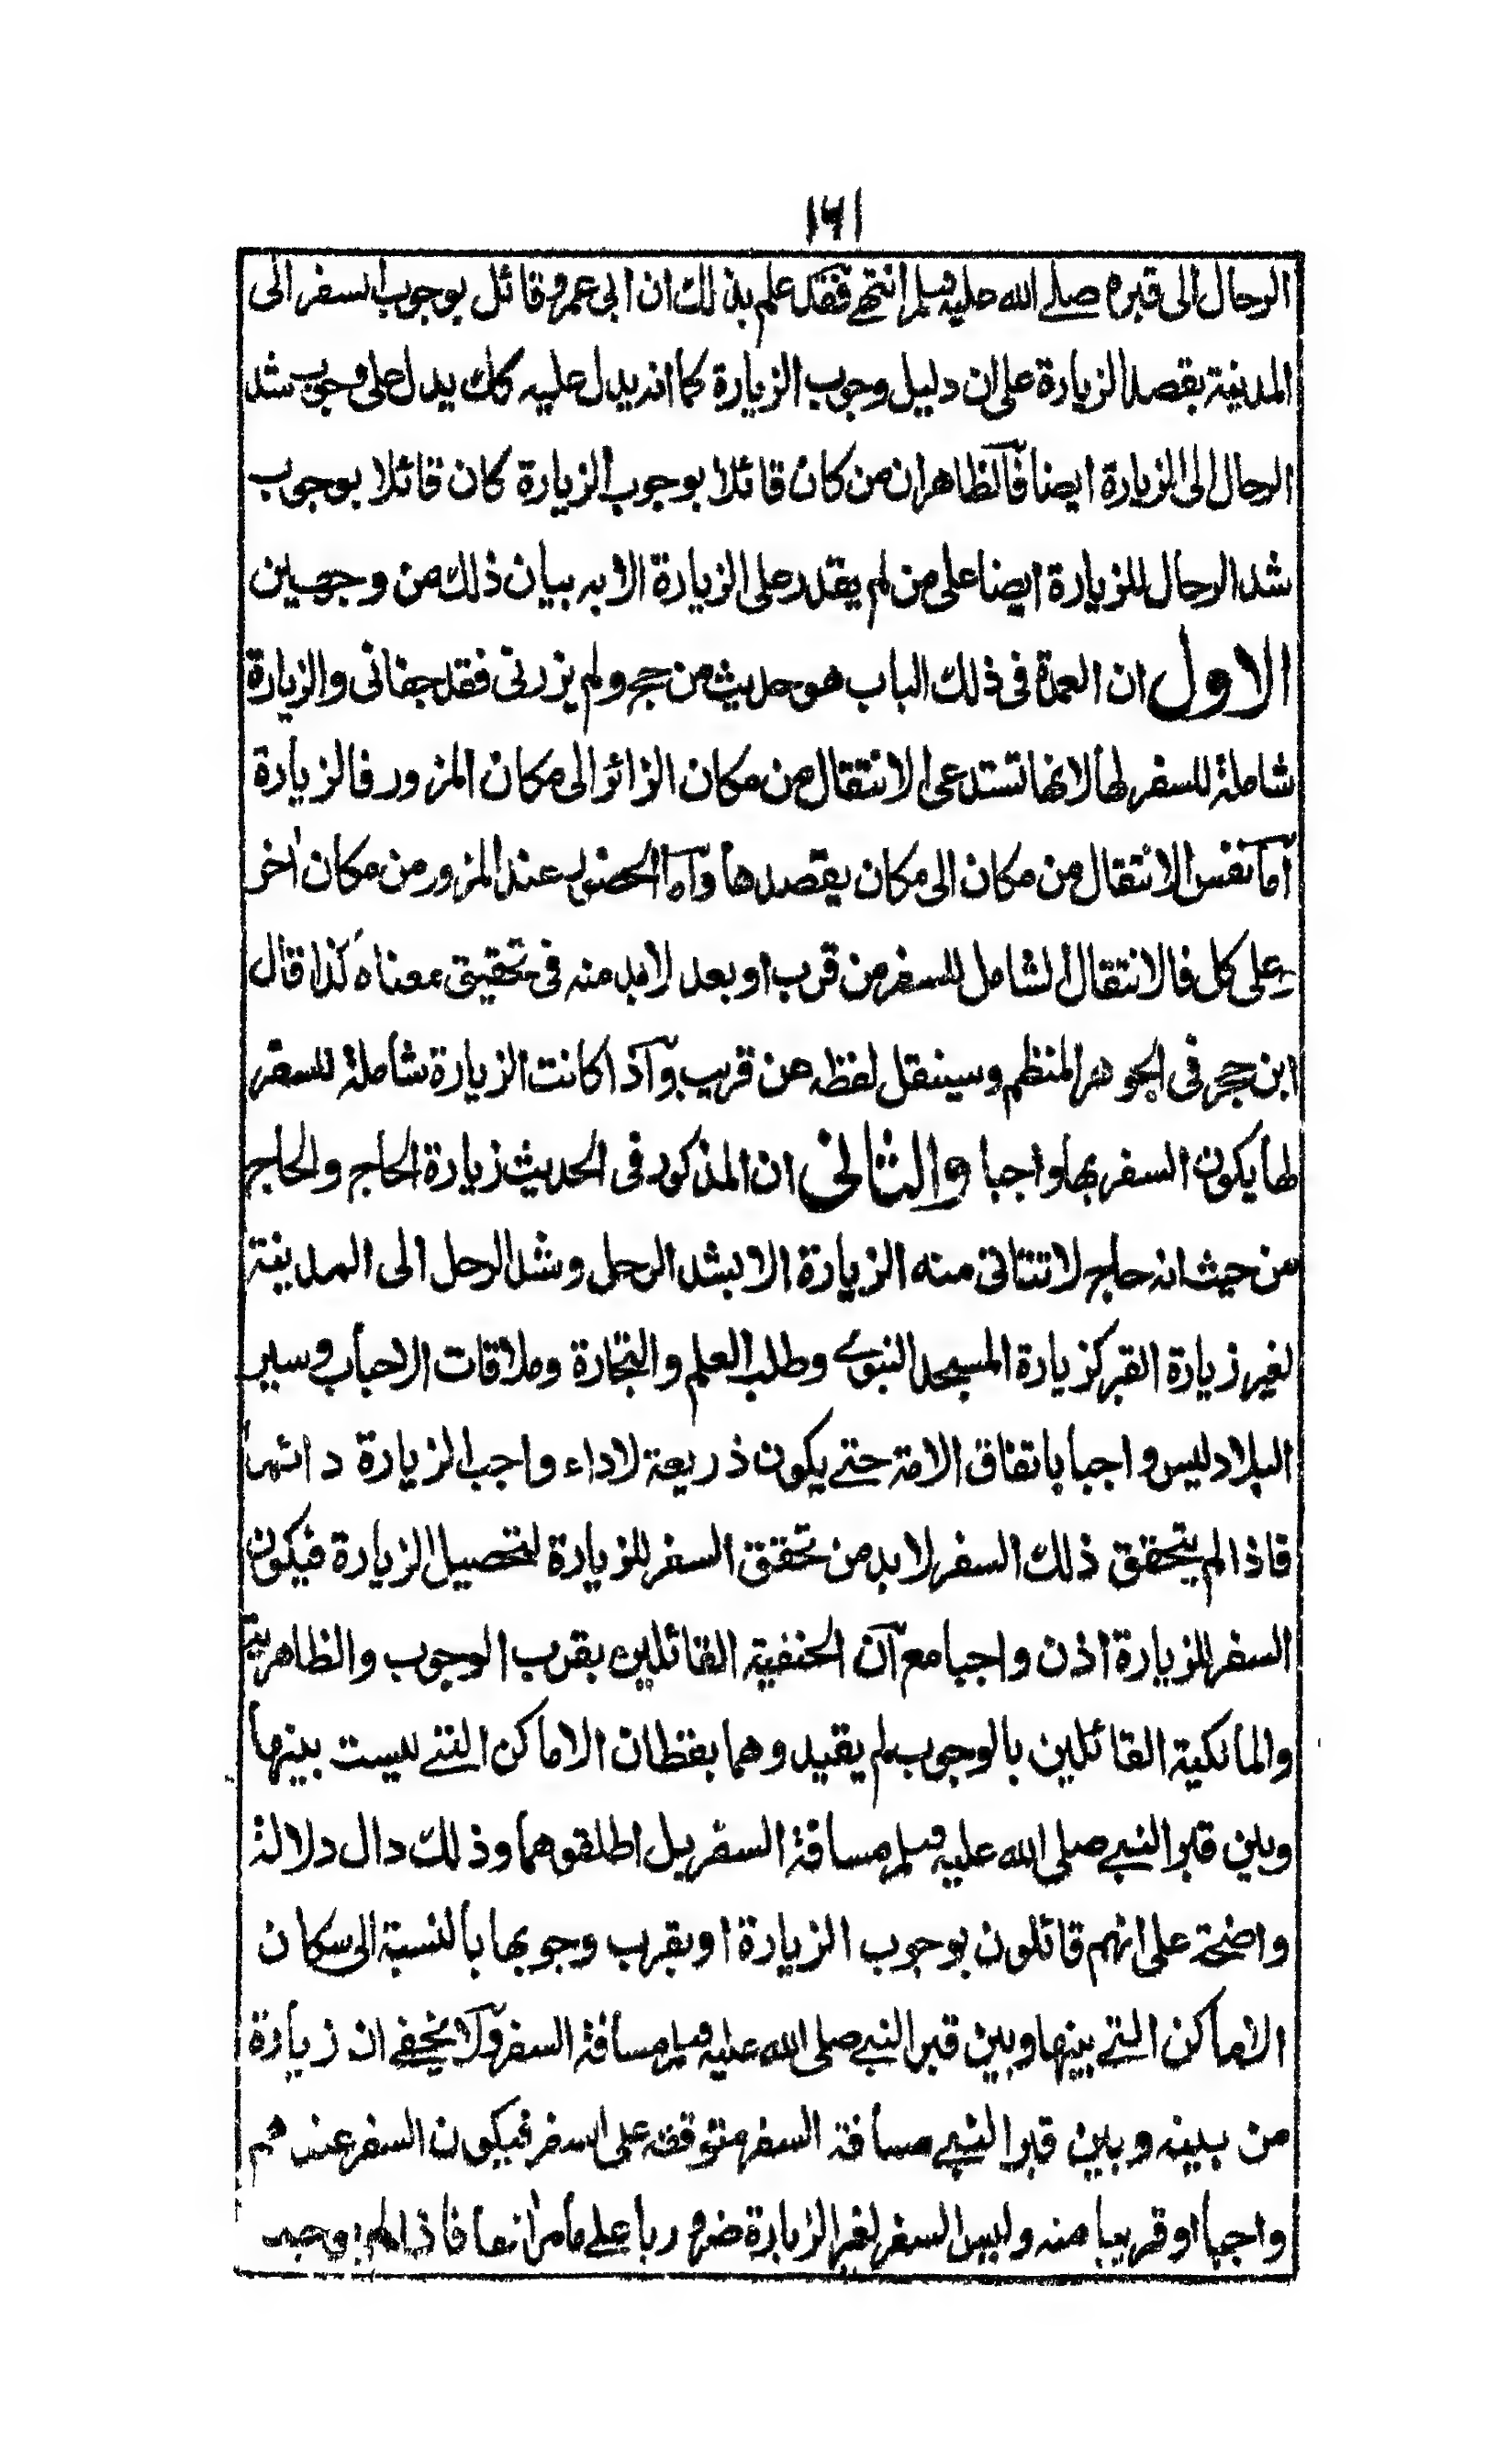 ۱۶۱
الرحال الى قبره صلے الله عليه وسلم انتهے فقد علم بذلك ان ابى عمرو قائل بوجوب السفر الى
المدينة بقصد الزيارة على ان دليل وجوب الزيارة كما انه يدل عليه كك يدل على وجوب شد
الرحال الى الزيارة ايضا فالظاهر ان من كان قائلا بوجوب الزيارة كان قائلا بوجوب
شد الرحال للزيارة ايضا على من لم يقدر على الزيارة الا به بيان ذلك من وجهين
الاول ان العمدة فى ذلك الباب هو حديث من حج ولم يزرنى فقد جفانى والزيارة
شاملة للسفر لها لانها تستدعى الانتقال من مكان الزائر الى مكان المزور فالزيارة
اما نفس الانتقال من مكان الى مكان يقصدها واما الحضور عند المزور من مكان اخر
وعلى كل فالانتقال الشامل للسفر من قرب او بعد لابد منه فى تحقيق معناه كذا قال
ابن حجر فى الجوهر المنظم وسينقل لفظه عن قريب واذا كانت الزيارة شاملة للسفر
لها يكون السفر بها واجبا والثانى ان المذكور فى الحديث زيارة الحاج والحاج
من حيث انه حاج لا تتاتى منه الزيارة الا بشد الرحل وشد الرحل الى المدينة
لغير زيارة القبر كزيارة المسجد النبوے وطلب العلم والتجارة وملاقات الاحباب وسير
البلاد ليس واجبا باتفاق الامة حتے يكون ذريعة لاداء واجب الزيارة دائما
فاذا لم يتحقق ذلك السفر لابد من تحقق السفر للزيارة لتحصيل الزيارة فيكون
السفر للزيارة اذن واجبا مع ان الحنفية القائلين بقرب الوجوب والظاهرية
والمالكية القائلين بالوجوب لم يقيدوهما بقطان الاماكن التتے ليست بينها
وبين قبر النبے صلى الله عليه وسلم مسافة السفر بل اطلقوهما وذلك دال دلالة
واضحة على انهم قائلون بوجوب الزيارة او بقرب وجوبها بالنسبة الى سكان
الاماكن التے بينها وبين قبر النبے صلى الله عليه وسلم مسافة السفر ولا يخفے ان زيارة
من بينه وبين قبر النبے مسافة السفر متوقفة على السفر فيكون السفر عندهم
واجبا او قريبا منه وليس السفر لغير الزيارة ضروريا علے ما مر انفا فاذا لم يوجد